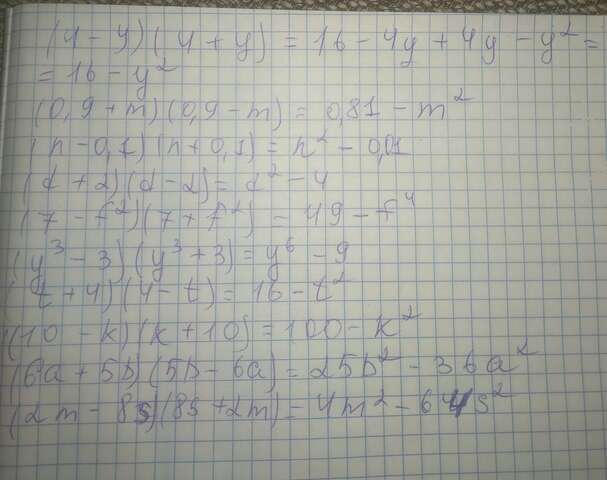 (4 - y)(4 + y) = 16 - 4y + 4y - y² =
= 16 - y²
(0,9 + m)(0,9 - m) = 0,81 - m²
(n - 0,1)(n + 0,1) = n² - 0,01
(d + 2)(d - 2) = d² - 4
(7 - f²)(7 + f²) = 49 - f⁴
(y³ - 3)(y³ + 3) = y⁶ - 9
(t + 4)(4 - t) = 16 - t²
(10 - k)(k + 10) = 100 - k²
(6a + 5b)(5b - 6a) = 25b² - 36a²
(2m - 8s)(8s + 2m) = 4m² - 64s²